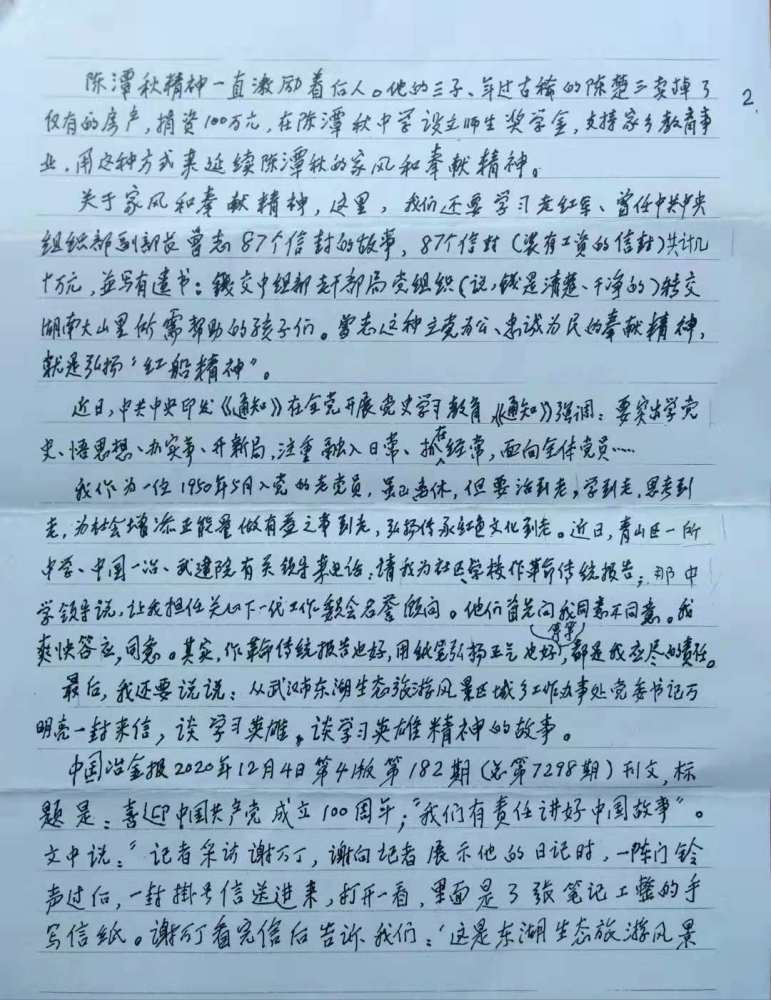 陈潭秋精神一直激励着后人。他的三子、年过古稀的陈楚三卖掉了
2.
仅有的房产，捐资100万元，在陈潭秋中学设立师生奖学金，支持家乡教育事
业，用这种方式来延续陈潭秋的家风和奉献精神。
关于家风和奉献精神，这里，我们还要学习老红军、曾任中共中央
组织部副部长曾志87个信封的故事，87个信封（装有工资的信封）共计几
十万元，並写有遗书：钱交中组部老干部局党组织（说，钱是清楚、干净的）转交
湖南大山里所需帮助的孩子们。曾志这种立党为公、忠诚为民的奉献精神，
就是弘扬“红船精神”。
近日，中共中央印发《通知》在全党开展党史学习教育，《通知》强调：要突出学党
史、悟思想、办实事、开新局，注重融入日常、抓在经常，面向全体党员……
我作为一位1950年5月入党的老党员，虽已离休，但要活到老，学到老，思考到
老，为社会增添正能量做有益之事到老，弘扬传承红色文化到老。近日，青山区一所
中学、中国一冶、武建院有关领导来电话，请我为社区学校作革命传统报告；那中
学领导说，让我担任关心下一代工作委员会名誉顾问。他们首先问我同意不同意。我
爽快答应，同意。其实，作革命传统报告也好，用纸笔弘扬正气也好，等等，都是我应尽的责任。
最后，我还要说说：从武汉市东湖生态旅游风景区城乡工作办事处党委书记万
明亮一封来信，谈学习英雄，谈学习英雄精神的故事。
中国冶金报2020年12月4日第4版第182期（总第7298期）刊文，标
题是：喜迎中国共产党成立100周年；“我们有责任讲好中国故事”。
文中说：“记者采访谢万丁，谢向记者展示他的日记时，一阵门铃
声过后，一封掛号信送进来，打开一看，里面是3张笔记工整的手
写信纸。谢万丁看完信后告诉我们：‘这是东湖生态旅游风景